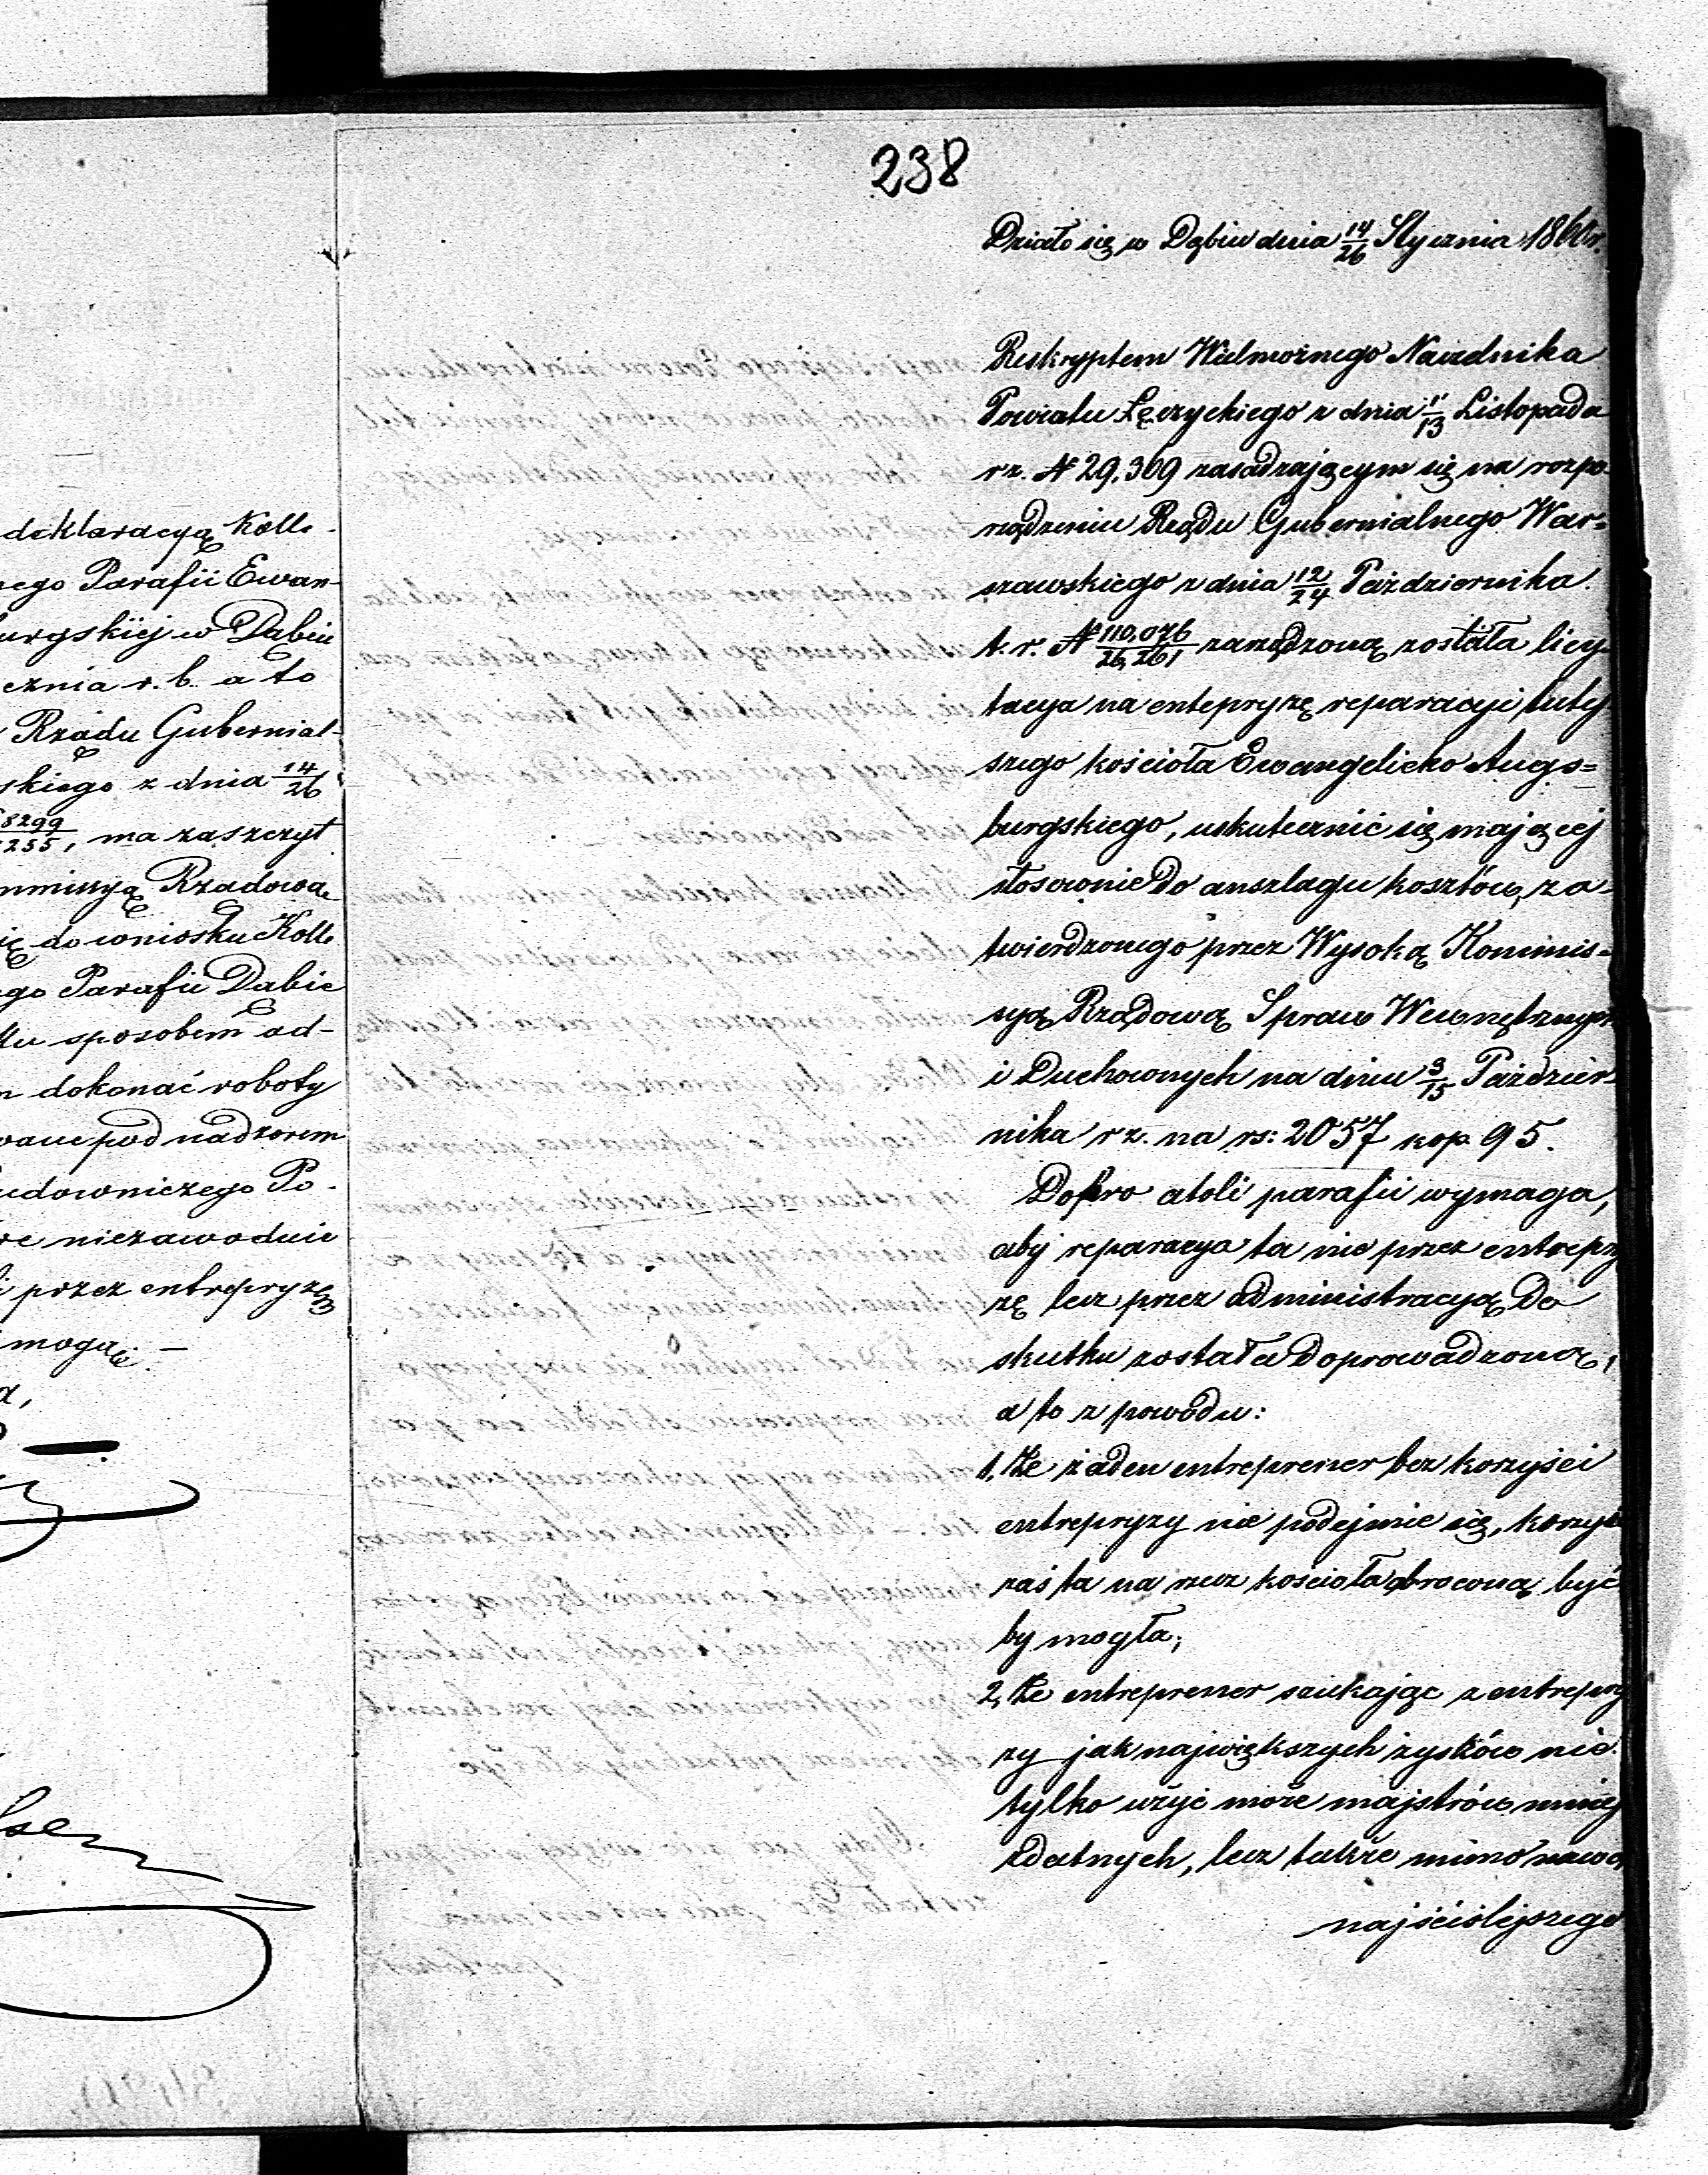 deklaracyą Kolle-
nego Parafii Ewan-
burgskiéj w Dąbiu
cznia r. b. a to
Rządu Gubernial-
skiego z dnia 14/26
8299/255, ma zaszczyt
mmissyą Rządową
ię do wniosku Kolle
ego Parafii Dąbie
ku sposobem ad-
m dokonać roboty
wane pod nadzorem
udowniczego Po-
re niezawodnie
i przez entrepryzę
mogą. —
238
Działo się w Dąbiu dnia 14/26 Stycznia 186 r.
Reskryptem Wielmożnego Naczelnika
Powiatu Łęczyckiego z dnia 1/13 Listopada
r z. N 29,369 zasadzającym się na rozpo-
rządzeniu Rządu Gubernialnego War=
szawskiego z dnia 12/24 Października
t. r. N 110,076/26,261 zarządzoną została licy-
tacya na entepryzę reparacyi tutej
szego kościoła Ewangelicko Augs=
burgskiego, uskutecznić się mającej
stosownie do anszlagu kosztów, za=
twierdzonego przez Wysoką Kommis=
syą Rządową Spraw Wewnętrznych
i Duchownych na dniu 3/15 Paździer-
nika r z. na rs: 2057 kop. 95.
Dobro atoli parafii wymaga,
aby reparacya ta nie przez entrepry
zę lecz przez administracyą do
skutku została doprowadzoną,
a to z powodu:
1, Że żaden entreprener bez korzyści
entrepryzy nie podejmie się, korzyść
zaś ta na rzecz kościoła obroconą być
by mogła;
2, Że entreprener szukając z entrepry
zy jak największych zysków nie
tylko użyć może majstrów mniej
zdatnych, lecz także mimo nawet
najściślejszego